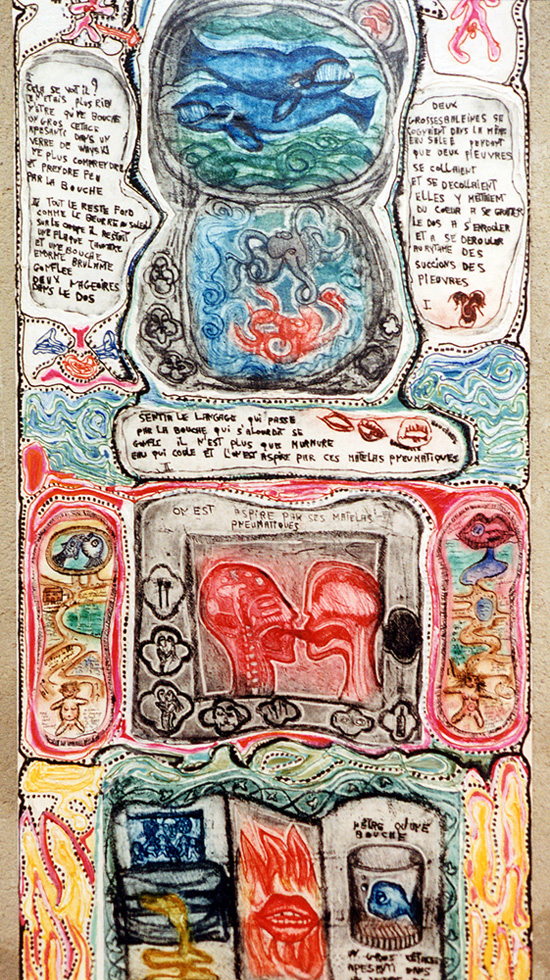 I
CELA SE VOIT IL ?
JE N'ETAIS PLUS RIEN
N'ÊTRE QU'UNE BOUCHE
UN GROS CETACE
APESANTI DANS UN
VERRE DE
NE PLUS COMPRENDRE
ET PRENDRE FEU
PAR LA BOUCHE
II TOUT LE RESTE FOND
COMME LE BEURRE AU SOLEIL
SUR LE COUPE IL RESTAIT
UNE FLAQUE
ET UNE BOUCHE
ENORME BRULANTE
GONFLEE
DEUX NAGEOIRES
DANS LE DOS
DEUX
GROSSES BALEINES SE
COGNAIENT DANS LA MÊME
EAU SALEE PENDANT
QUE DEUX PIEUVRES
SE COLLAIENT
ET SE DECOLLAIENT
ELLES Y METTAIENT
DU COEUR A SE GRATTER
LE DOS A S'ENROULER
ET A SE DEROULER
AU RYTHME DES
SUCCIONS DES
PIEUVRES
I.
SENTIR LE LANGAGE QUI PASSE
PAR LA BOUCHE QUI S'ALOURDIT SE
GONFLE IL N'EST PLUS QUE MURMURE
EAU QUI COULE ET L'ON EST ASPIRE PAR CES MATELAS PNEUMATIQUES
II
ON EST ASPIRE PAR SES MATELAS
PNEUMATIQUES
N'ÊTRE QU'UNE
BOUCHE
UN GROS CETACE
APESENTI DANS